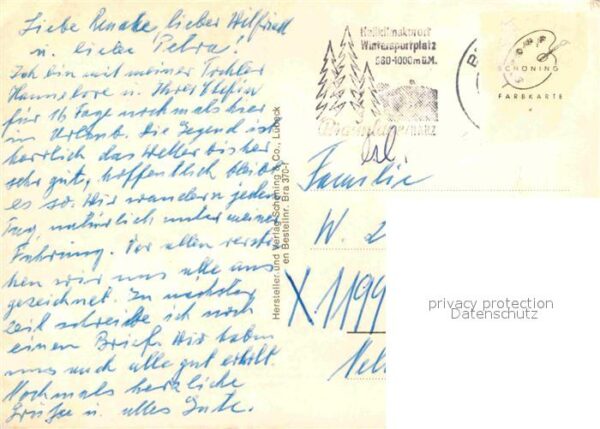 Liebe Renate, lieber Wilfried
u. liebe Petra!
Ich bin mit meiner Tochter
Hannelore u. Ihrer Chefin
für 16 Tage nochmals hier
in Urlaub. Die Gegend ist
herrlich das Wetter bisher
sehr gut, hoffentlich bleibt
es so. Wir wandern jeden
Tag, natürlich unter meiner
Führung. Vor allen verste-
hen wir uns alle aus
gezeichnet. In nächster
Zeit schreibe ich noch
einen Brief. Wir haben
uns auch alle gut erholt.
Nochmals herzliche
Grüße u. alles Gute.
Hersteller und Verlag Schöning & Co., Lübeck
en Bestellnr. Bra 370-f
Heilklimakurort
Wintersportplatz
580-1000 m ü.M.
HARZ
SCHÖNING
FARBKARTE
Familie
W. 2
X 1199
privacy protection
Datenschutz